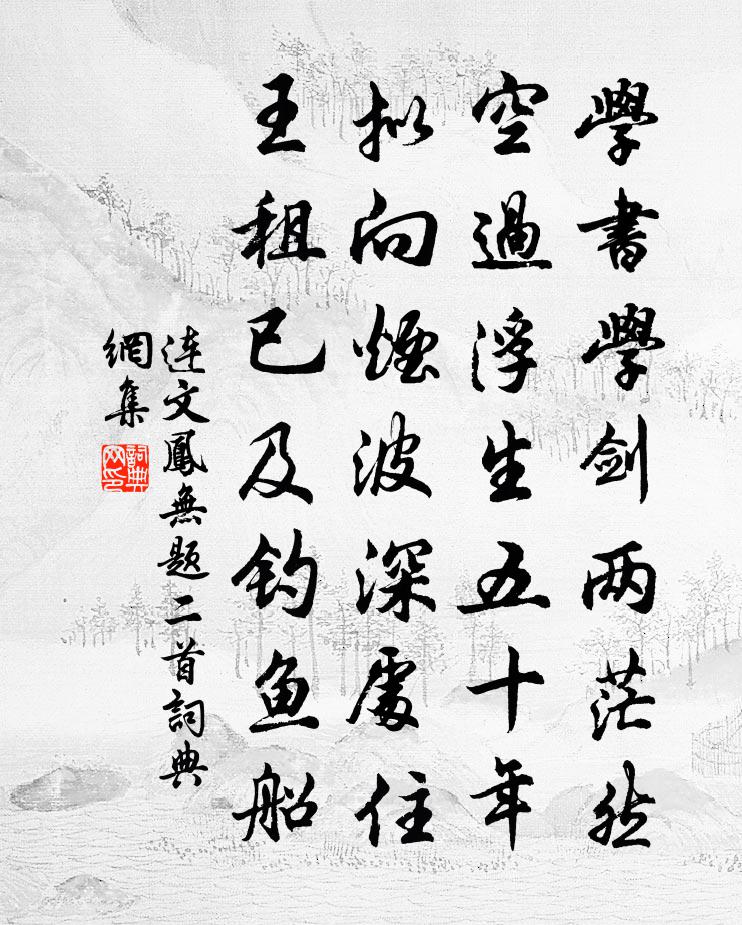 學書學劍两茫然
空過浮生五十年
拟向煙波深處住
王租已及钓鱼船
连文鳳無题二首詞典
網集
詞典
网印